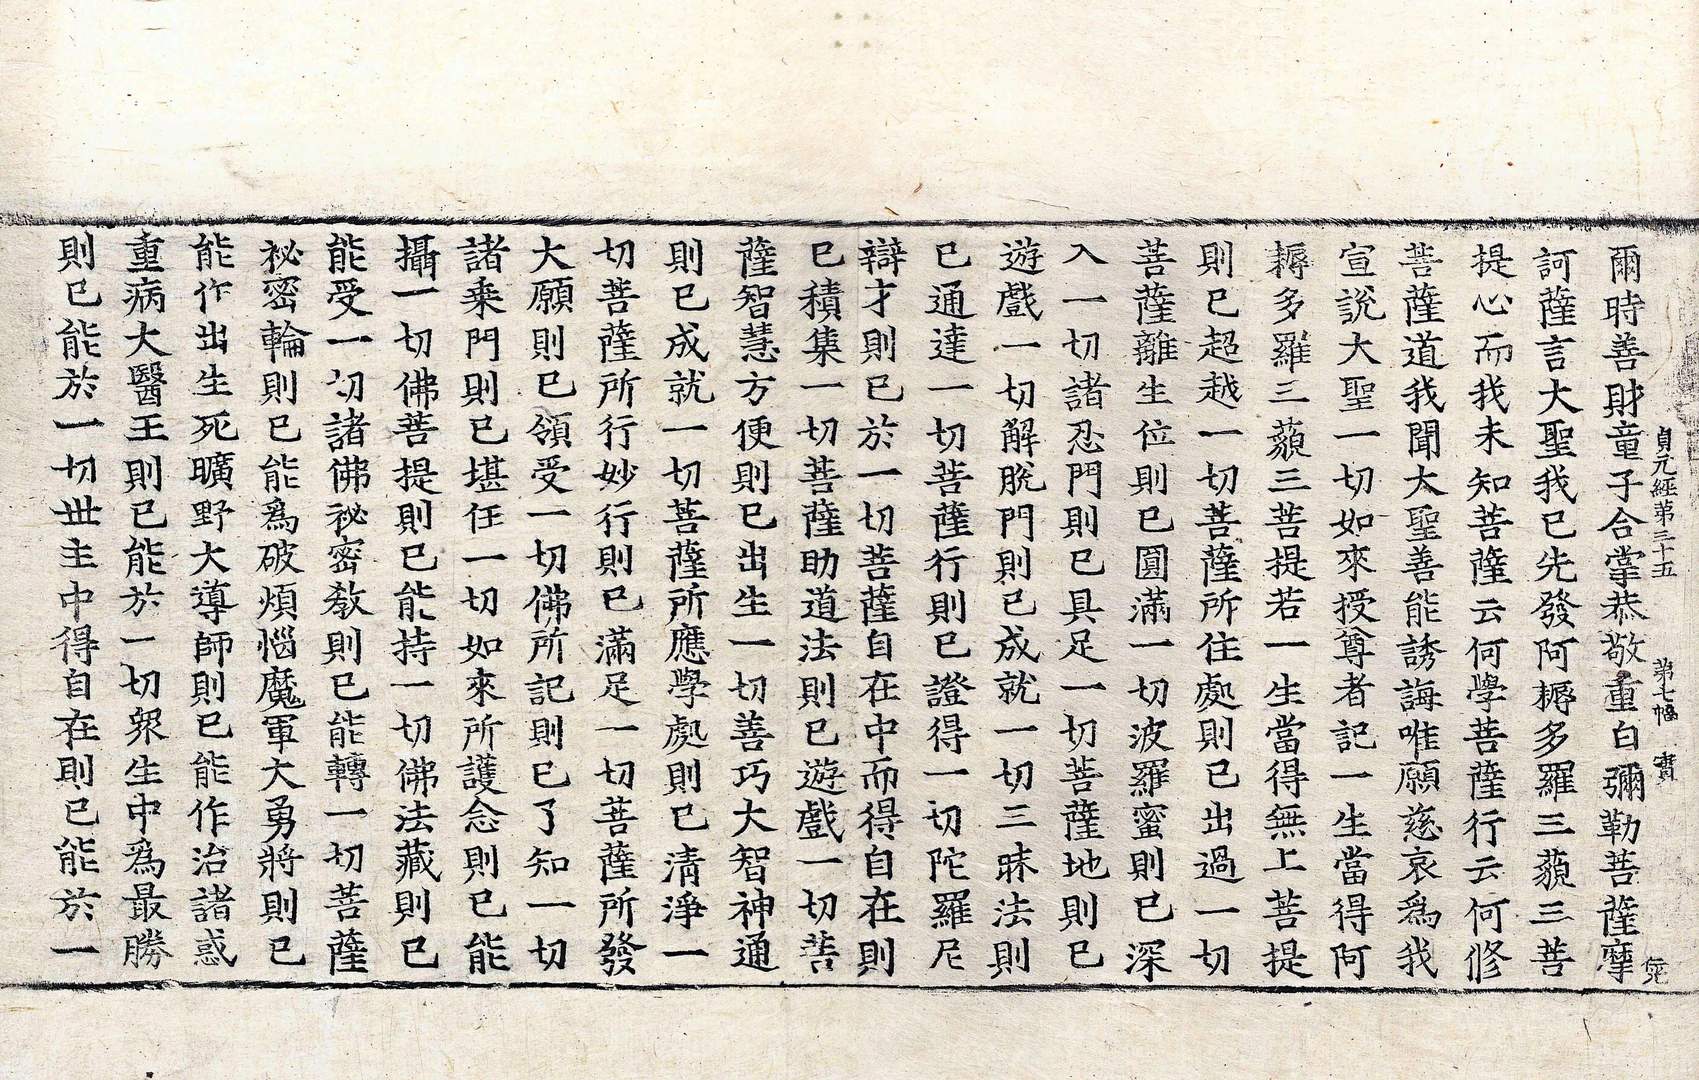 貞元經第三十五 第七幅 實
爾時善財童子合掌恭敬重白彌勒菩薩摩
訶薩言大聖我已先發阿耨多羅三藐三菩
提心而我未知菩薩云何學菩薩行云何修
菩薩道我聞大聖善能誘誨唯願慈哀爲我
宣說大聖一切如來授尊者記一生當得阿
耨多羅三藐三菩提若一生當得無上菩提
則已超越一切菩薩所住處則已出過一切
菩薩離生位則已圓滿一切波羅蜜則已深
入一切諸忍門則已具足一切菩薩地則已
遊戲一切解脫門則已成就一切三昧法則
已通達一切菩薩行則已證得一切陀羅尼
辯才則已於一切菩薩自在中而得自在則
已積集一切菩薩助道法則已遊戲一切菩
薩智慧方便則已出生一切善巧大智神通
則已成就一切菩薩所應學處則已清淨一
切菩薩所行妙行則已滿足一切菩薩所發
大願則已領受一切佛所記則已了知一切
諸乘門則已堪任一切如來所護念則已能
攝一切佛菩提則已能持一切佛法藏則已
能受一切諸佛祕密教則已能轉一切菩薩
祕密輪則已能爲破煩惱魔軍大勇將則已
能作出生死曠野大導師則已能作治諸惑
重病大醫王則已能於一切眾生中爲最勝
則已能於一切世主中得自在則已能於一